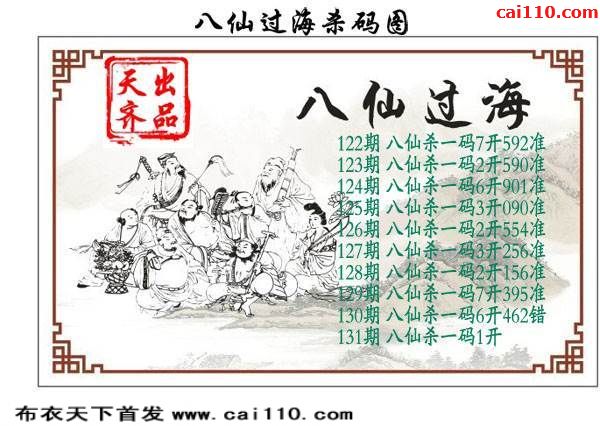 cai110.com
八仙过海杀码图
天齐出品
八仙过海
122期 八仙杀一码7开592准
123期 八仙杀一码2开590准
124期 八仙杀一码6开901准
125期 八仙杀一码3开090准
126期 八仙杀一码2开554准
127期 八仙杀一码3开256准
128期 八仙杀一码2开156准
129期 八仙杀一码7开395准
130期 八仙杀一码6开462错
131期 八仙杀一码1开
布衣天下首发 www.cai110.com